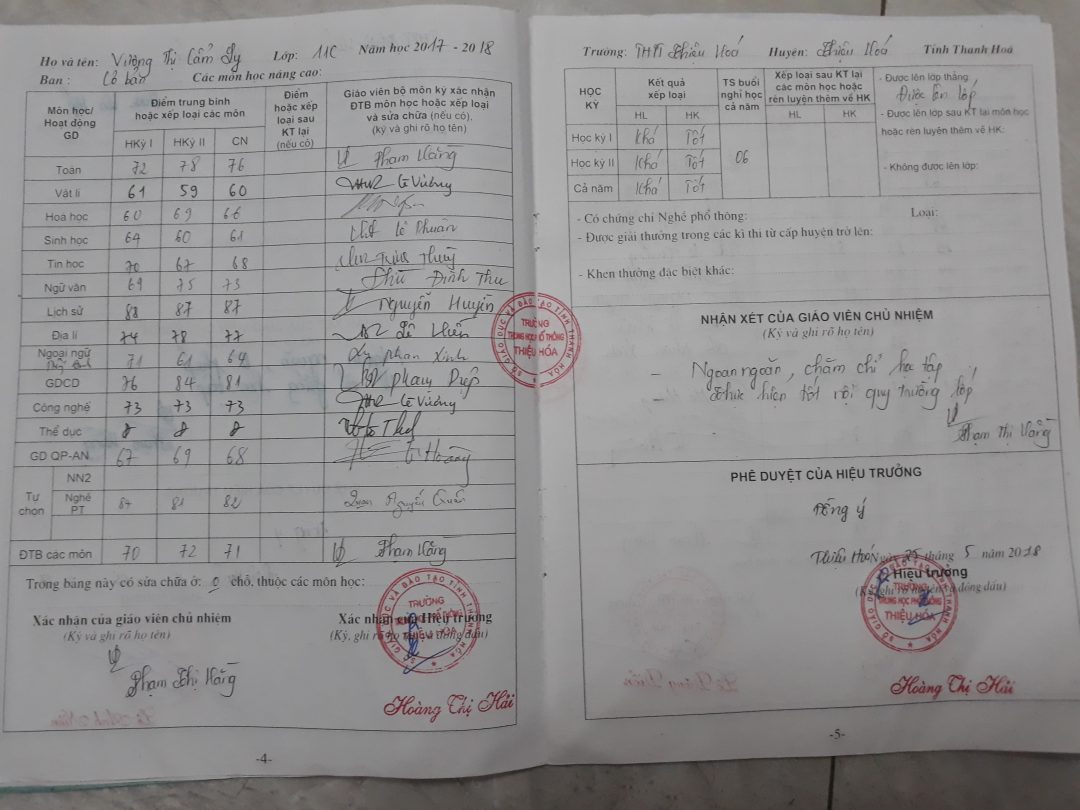 Họ và tên: Vương Thị Cẩm Ly Lớp: 11C Năm học 2017 - 2018
Ban: Cơ bản Các môn học nâng cao:
Môn học/ Hoạt động GD
Điểm trung bình hoặc xếp loại các môn
HKỳ I HKỳ II CN
Điểm hoặc xếp loại sau KT lại (nếu có)
Giáo viên bộ môn ký xác nhận ĐTB môn học hoặc xếp loại và sửa chữa (nếu có), (ký và ghi rõ họ tên)
Toán 72 78 76 Phạm Hằng
Vật lí 61 59 60 Lê Vương
Hoá học 60 69 66
Sinh học 64 60 61 Lê Thuần
Tin học 70 67 68 Thuỳ
Ngữ văn 69 75 73 Đình Thu
Lịch sử 88 87 87 Nguyễn Huyền
Địa lí 74 78 77 Lê Hiền
Ngoại ngữ 71 61 64
GDCD 76 84 81 Phạm Diệp
Công nghệ 73 73 73 Lê Vương
Thể dục đ đ đ
GD QP-AN 67 69 68 Hoàng
Tự chọn
NN2
Nghề PT 84 81 82 Nguyễn
ĐTB các môn 70 72 71 Phạm Hằng
Trong bảng này có sửa chữa ở: 0 chỗ, thuộc các môn học:
Xác nhận của giáo viên chủ nhiệm
(Ký và ghi rõ họ tên)
Phạm Thị Hằng
Xác nhận của Hiệu trưởng
(Ký, ghi rõ họ tên và đóng dấu)
SỞ GIÁO DỤC VÀ ĐÀO TẠO TỈNH THANH HÓA
TRƯỜNG
TRUNG HỌC PHỔ THÔNG
THIỆU HÓA
Hoàng Thị Hải
-4-
SỞ GIÁO DỤC VÀ ĐÀO TẠO TỈNH THANH HÓA
TRƯỜNG
TRUNG HỌC PHỔ THÔNG
THIỆU HÓA
Trường: THPT Thiệu Hoá Huyện: Thiệu Hoá Tỉnh Thanh Hoá
HỌC KỲ
Kết quả xếp loại
HL HK
TS buổi nghỉ học cả năm
Xếp loại sau KT lại các môn học hoặc rèn luyện thêm về HK
HL HK
Học kỳ I Khá Tốt
Học kỳ II Khá Tốt
Cả năm Khá Tốt
06
- Được lên lớp thẳng:
Được lên lớp
- Được lên lớp sau KT lại môn học
hoặc rèn luyện thêm về HK:
- Không được lên lớp:
- Có chứng chỉ Nghề phổ thông: Loại:
- Được giải thưởng trong các kì thi từ cấp huyện trở lên:
- Khen thưởng đặc biệt khác:
NHẬN XÉT CỦA GIÁO VIÊN CHỦ NHIỆM
(Ký và ghi rõ họ tên)
- Ngoan ngoãn, chăm chỉ học tập
- Thực hiện tốt nội quy trường lớp
Phạm Thị Hằng
PHÊ DUYỆT CỦA HIỆU TRƯỞNG
Đồng ý
Thiệu Hoá Ngày 25 tháng 5 năm 2018
Hiệu trưởng
(Ký, ghi rõ họ tên và đóng dấu)
SỞ GIÁO DỤC VÀ ĐÀO TẠO TỈNH THANH HÓA
TRƯỜNG
TRUNG HỌC PHỔ THÔNG
THIỆU HÓA
Hoàng Thị Hải
-5-